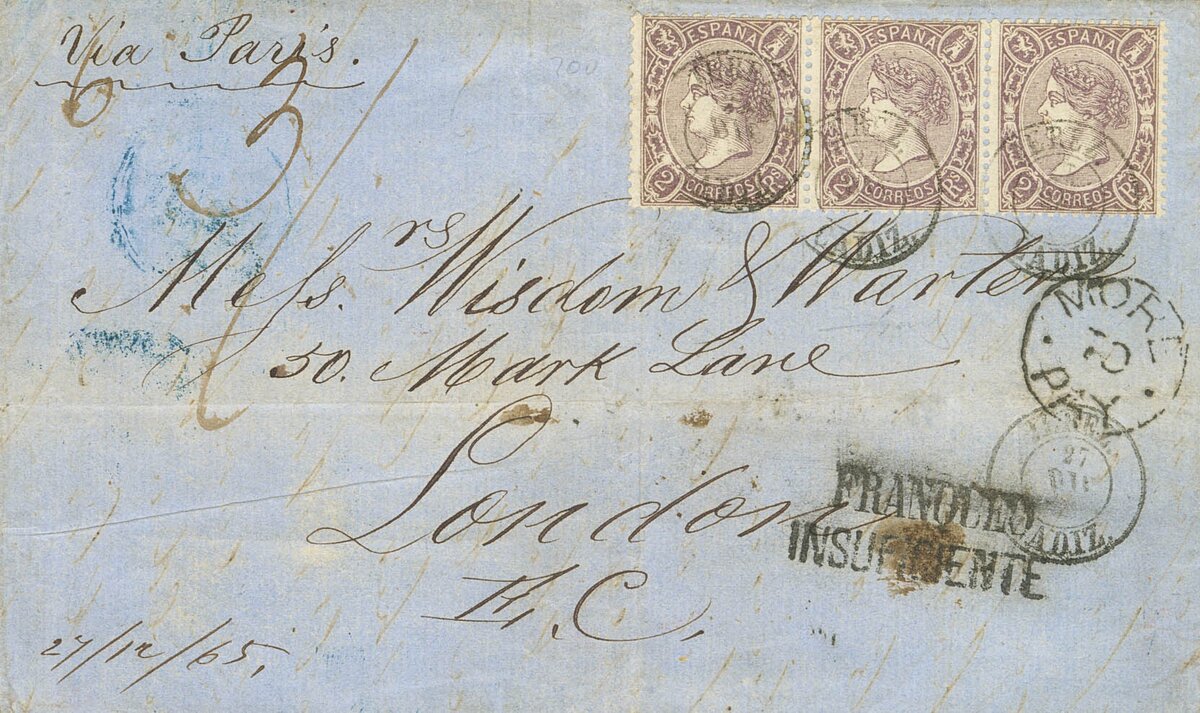 Via Paris.
ESPAÑA
2 CORREOS Rs
ESPAÑA
2 CORREOS Rs
ESPAÑA
2 CORREOS Rs
CADIZ.
CADIZ.
Messrs. Wisdom & Warten
50. Mark Lane
London
E.C.
MORE
PAY
27
DIC
CADIZ.
FRANQUEO
INSUFICIENTE
27/12/65.